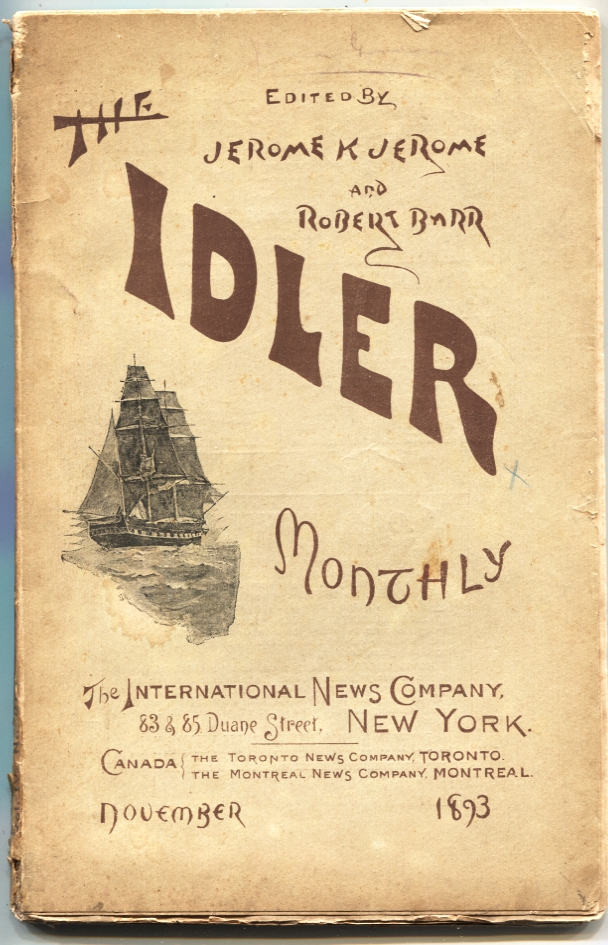 THE
EDITED BY
JEROME K JEROME
AND
ROBERT BARR
IDLER
MONTHLY
The INTERNATIONAL NEWS COMPANY,
83 & 85 Duane Street, NEW YORK.
CANADA { THE TORONTO NEWS COMPANY, TORONTO.
THE MONTREAL NEWS COMPANY, MONTREAL.
NOVEMBER 1893